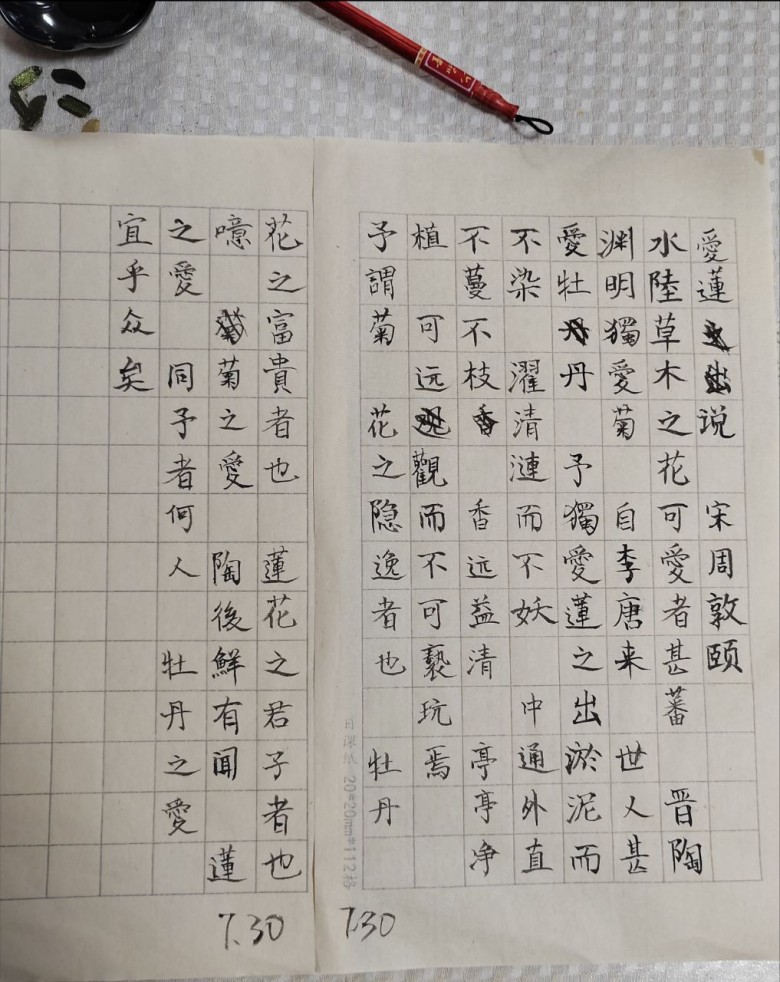 愛蓮说 宋周敦颐
水陸草木之花可愛者甚蕃 晋陶
渊明獨愛菊 自李唐来 世人甚
愛牡丹 予獨愛蓮之出淤泥而
不染 濯清漣而不妖 中通外直
不蔓不枝 香远益清 亭亭净
植 可远觀而不可褻玩焉
予謂菊 花之隐逸者也 牡丹
花之富貴者也 蓮花之君子者也
噫 菊之愛 陶後鮮有闻 蓮
之愛 同予者何人 牡丹之愛
宜乎众矣
7.30
7.30
日课纸 20*20mm*112格